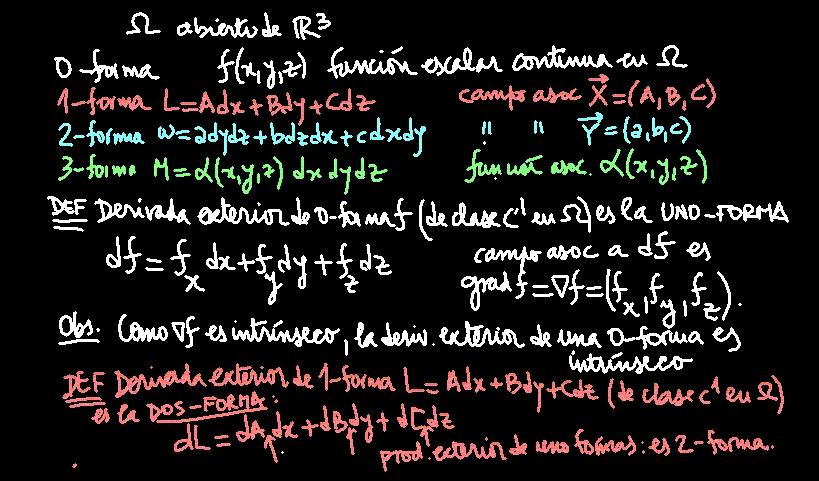 Ω abierto de ℝ³
0-forma f(x,y,z) función escalar continua en Ω
1-forma L=Adx+Bdy+Cdz campo asoc X⃗=(A,B,C)
2-forma ω=adydz+bdzdx+cdxdy " " Y⃗=(a,b,c)
3-forma M=α(x,y,z) dxdydz función asoc. α(x,y,z)
DEF Derivada exterior de 0-forma f (de clase C¹ en Ω) es la UNO-FORMA
df=f_x dx+f_y dy+f_z dz campo asoc a df es
grad f=∇f=(f_x, f_y, f_z).
Obs. Como ∇f es intrínseco, la deriv. exterior de una 0-forma es
intrínseco
DEF Derivada exterior de 1-forma L=Adx+Bdy+Cdz (de clase C¹ en Ω)
es la DOS-FORMA:
dL=dA dx+dB dy+dC dz
↑ ↑ ↑ prod. exterior de uno formas: es 2-forma.